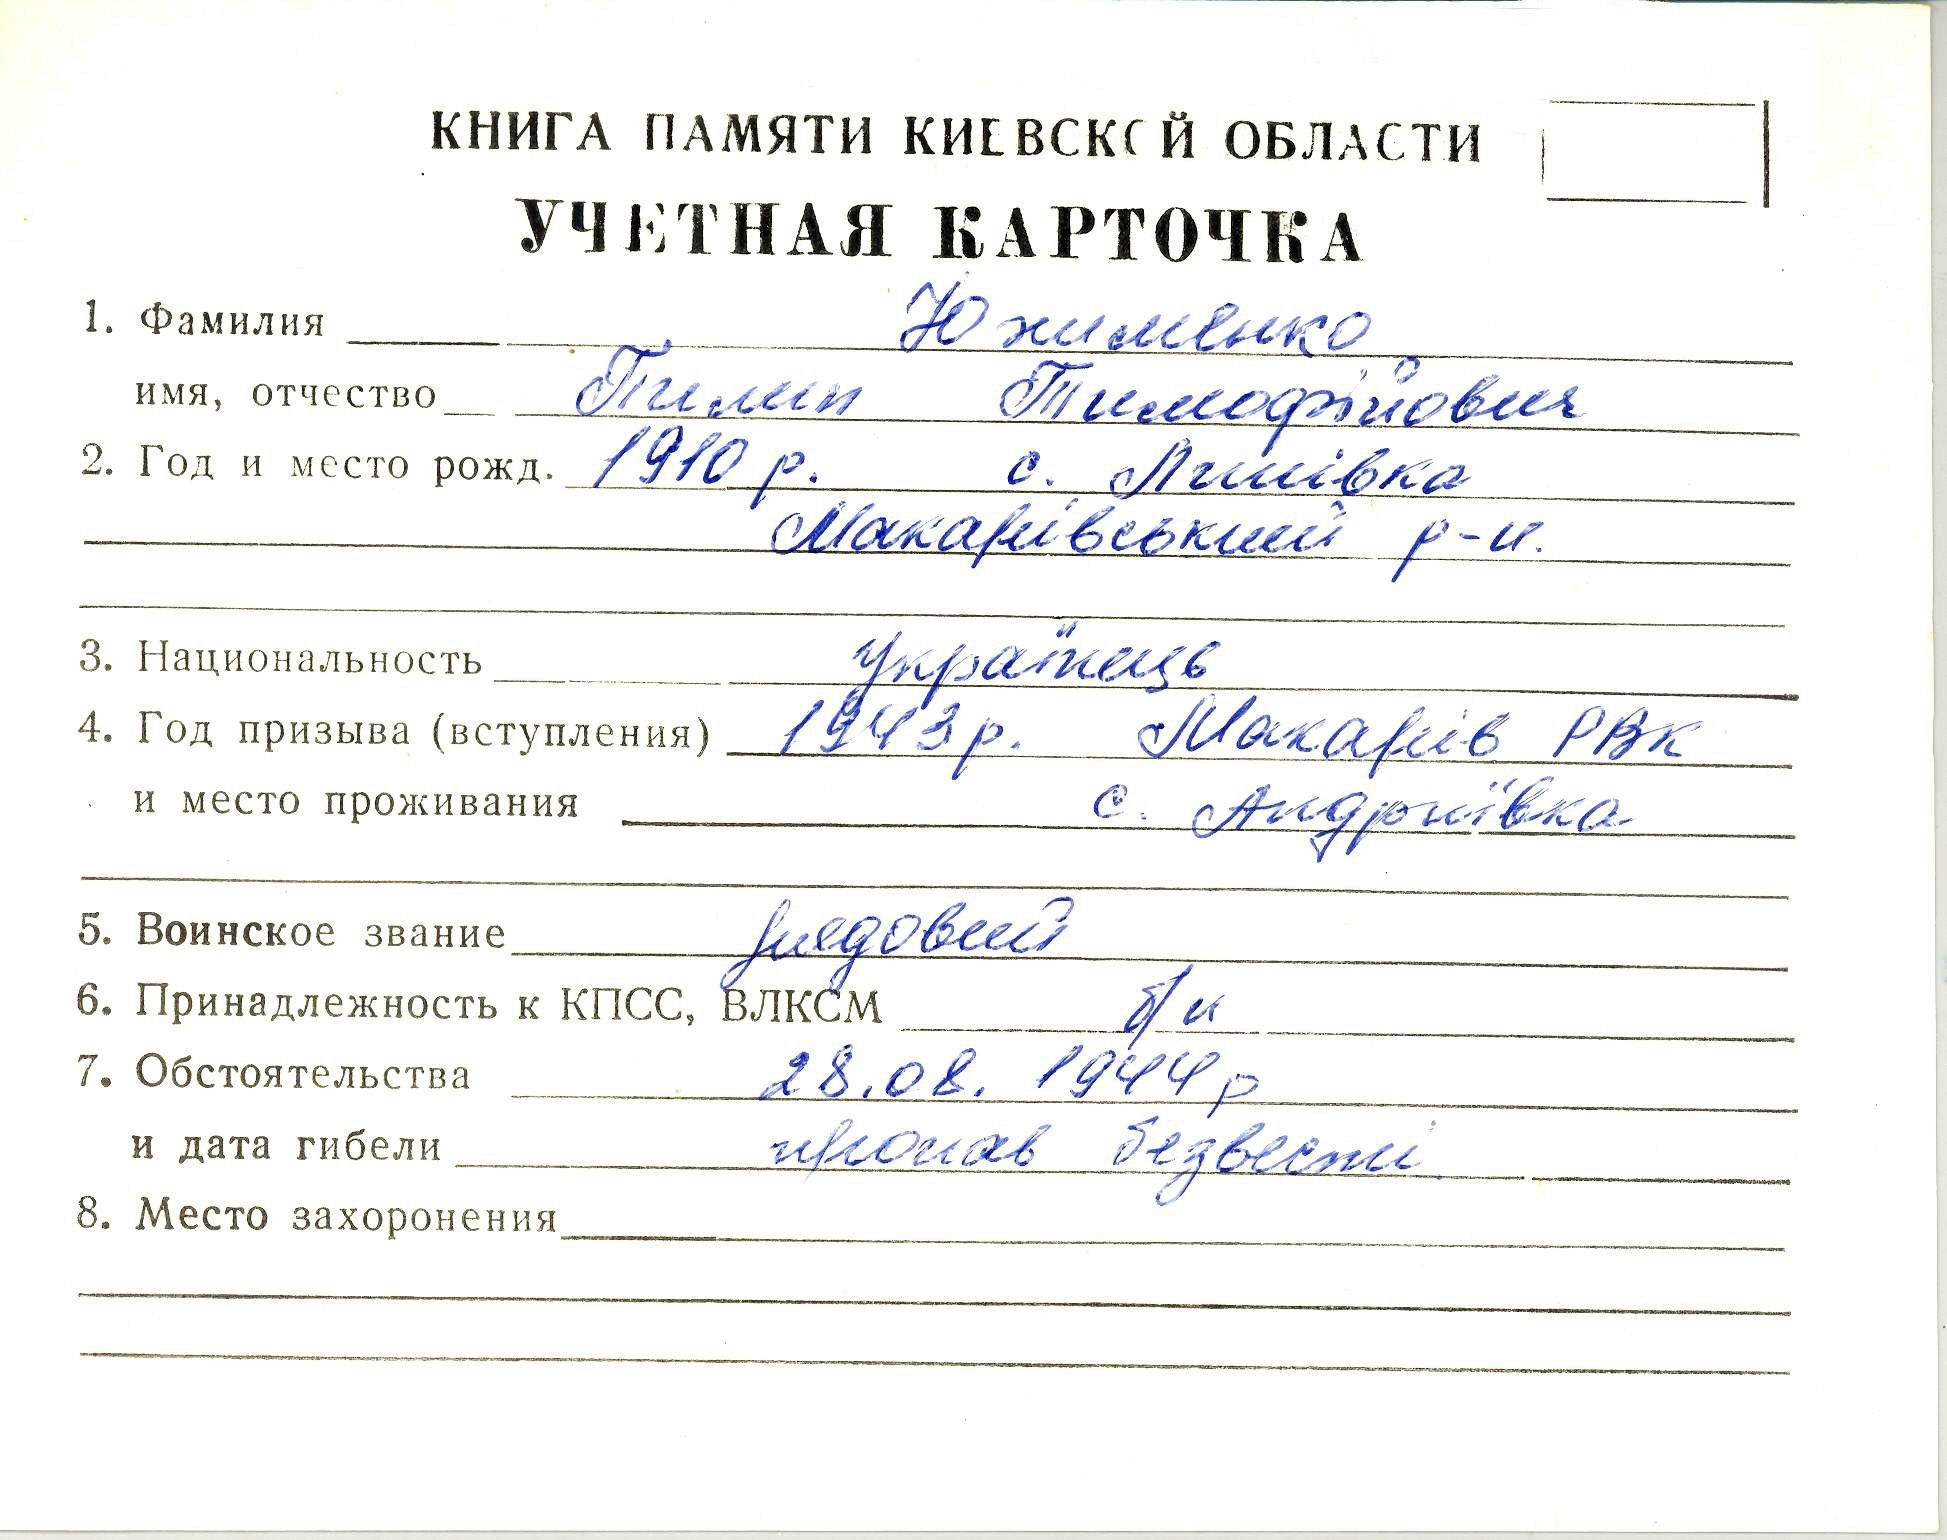 КНИГА ПАМЯТИ КИЕВСКОЙ ОБЛАСТИ
УЧЕТНАЯ КАРТОЧКА
1. Фамилия Юхименко
имя, отчество Пилип Тимофійович
2. Год и место рожд. 1910 р. с. Липівка
Макарівський р-н.
3. Национальность українець
4. Год призыва (вступления) 1943 р. Макарів РВК
и место проживания с. Андріївка
5. Воинское звание рядовий
6. Принадлежность к КПСС, ВЛКСМ б/п
7. Обстоятельства 28.08. 1944 р
и дата гибели пропав безвести
8. Место захоронения